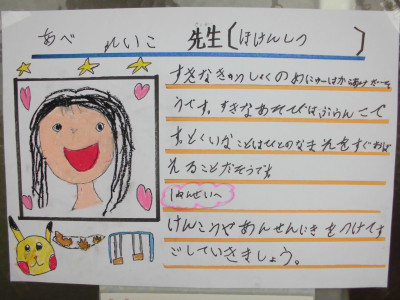 あべ れいこ 先生(ほけんしつ)
すきなきゅうしょくのめにゅーはからあげだーそ
うです。すきなあそびはぶらんこで
す。とくいなことはひとのなまえをすぐおぼ
えることだそうです。
1ねんせいへ
けんこうやあんぜんにきをつけてす
ごしていきましょう。